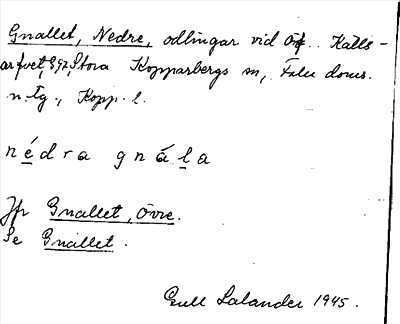 Gnallet, Nedre, odlingar vid Öv. Källs-
arfvet, Stora Kopparbergs sn, Falu doms.
n. tg., Kopp. l.
nédra gnála
Jfr Gnallet, Övre.
Se Gnallet.
Gull Salander 1945.